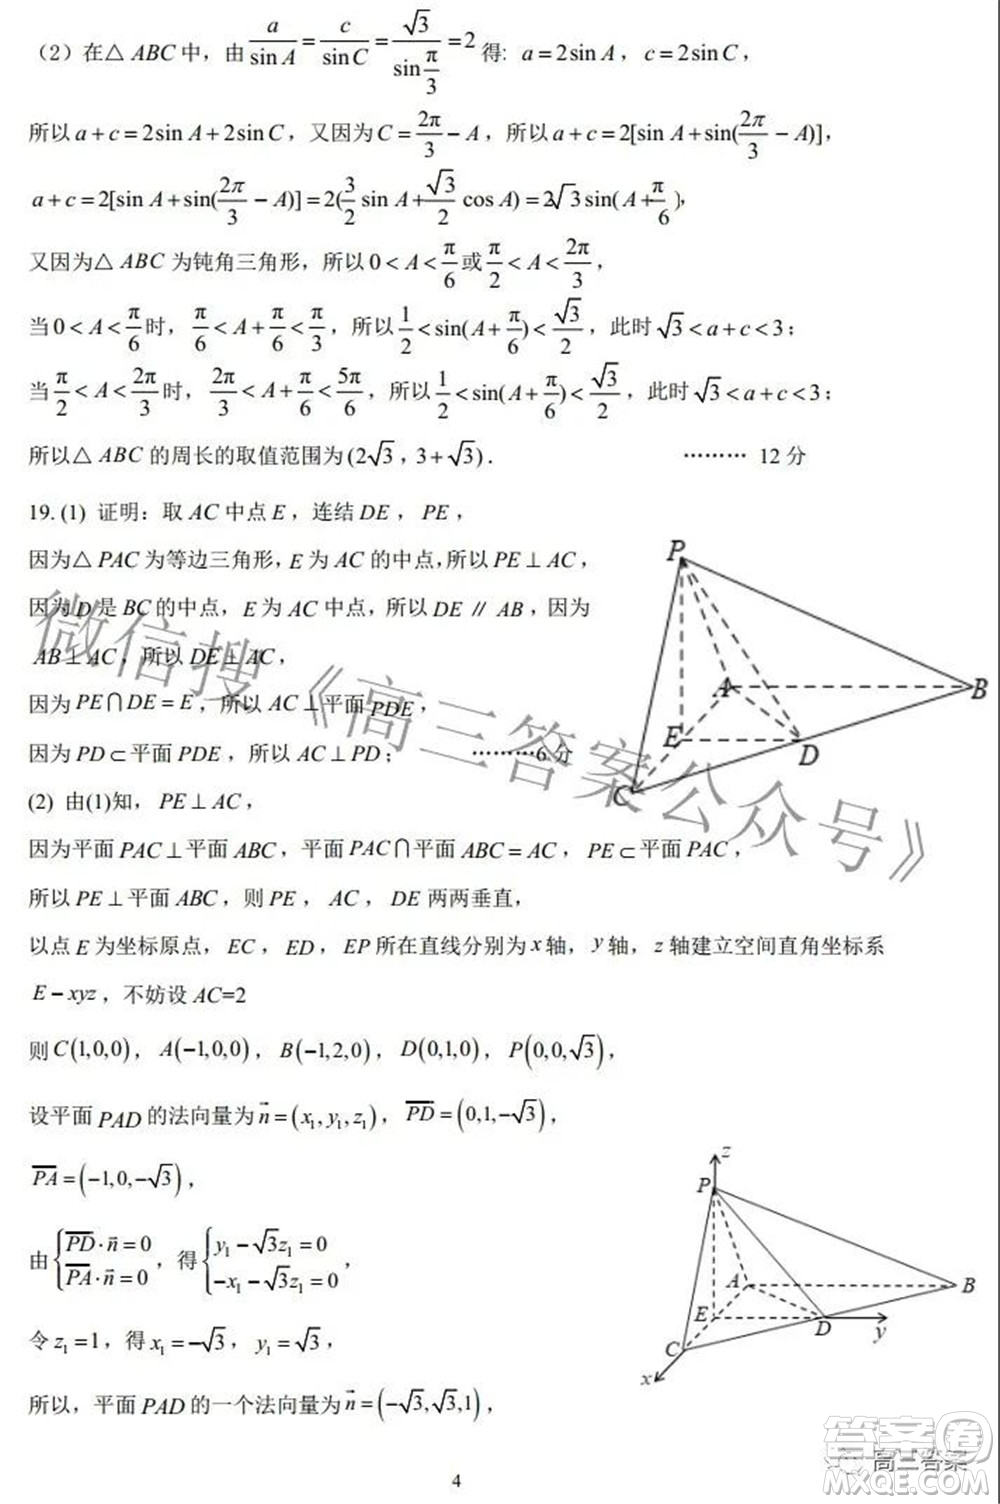 （2）在△ ABC 中，由 a/sin A = c/sin C = √3/sin(π/3) = 2 得: a = 2sin A，c = 2sin C，
所以 a + c = 2sin A + 2sin C，又因为 C = 2π/3 − A，所以 a + c = 2[sin A + sin(2π/3 − A)]，
a + c = 2[sin A + sin(2π/3 − A)] = 2(3/2 sin A + √3/2 cos A) = 2√3 sin(A + π/6)，
又因为△ ABC 为钝角三角形，所以 0 < A < π/6 或 π/2 < A < 2π/3，
当 0 < A < π/6 时， π/6 < A + π/6 < π/3，所以 1/2 < sin(A + π/6) < √3/2，此时 √3 < a + c < 3；
当 π/2 < A < 2π/3 时， 2π/3 < A + π/6 < 5π/6，所以 1/2 < sin(A + π/6) < √3/2，此时 √3 < a + c < 3；
所以△ ABC 的周长的取值范围为 (2√3，3 + √3)． ……… 12 分
19. (1) 证明：取 AC 中点 E，连结 DE， PE，
因为△ PAC 为等边三角形，E 为 AC 的中点，所以 PE ⊥ AC，
因为 D 是 BC 的中点，E 为 AC 中点，所以 DE ∥ AB，因为
AB ⊥ AC，所以 DE ⊥ AC，
因为 PE ∩ DE = E，所以 AC ⊥ 平面 PDE，
因为 PD ⊂ 平面 PDE，所以 AC ⊥ PD； ………6 分
P
A
B
E
D
C
(2) 由(1)知， PE ⊥ AC，
因为平面 PAC ⊥ 平面 ABC，平面 PAC ∩ 平面 ABC = AC， PE ⊂ 平面 PAC，
所以 PE ⊥ 平面 ABC，则 PE， AC， DE 两两垂直，
以点 E 为坐标原点， EC， ED， EP 所在直线分别为 x 轴， y 轴， z 轴建立空间直角坐标系
E − xyz，不妨设 AC=2
则 C(1,0,0)， A(−1,0,0)， B(−1,2,0)， D(0,1,0)， P(0,0,√3)，
设平面 PAD 的法向量为 n⃗ = (x₁, y₁, z₁)， PD = (0,1,−√3)，
PA = (−1,0,−√3)，
由 {PD · n⃗ = 0, PA · n⃗ = 0，得 {y₁ − √3z₁ = 0, −x₁ − √3z₁ = 0，
令 z₁ = 1，得 x₁ = −√3， y₁ = √3，
所以，平面 PAD 的一个法向量为 n⃗ = (−√3, √3, 1)，
z
P
A
B
E
D
y
C
x
微信搜《高三答案公众号》
高三答案
答案卷
MXQE.COM
4